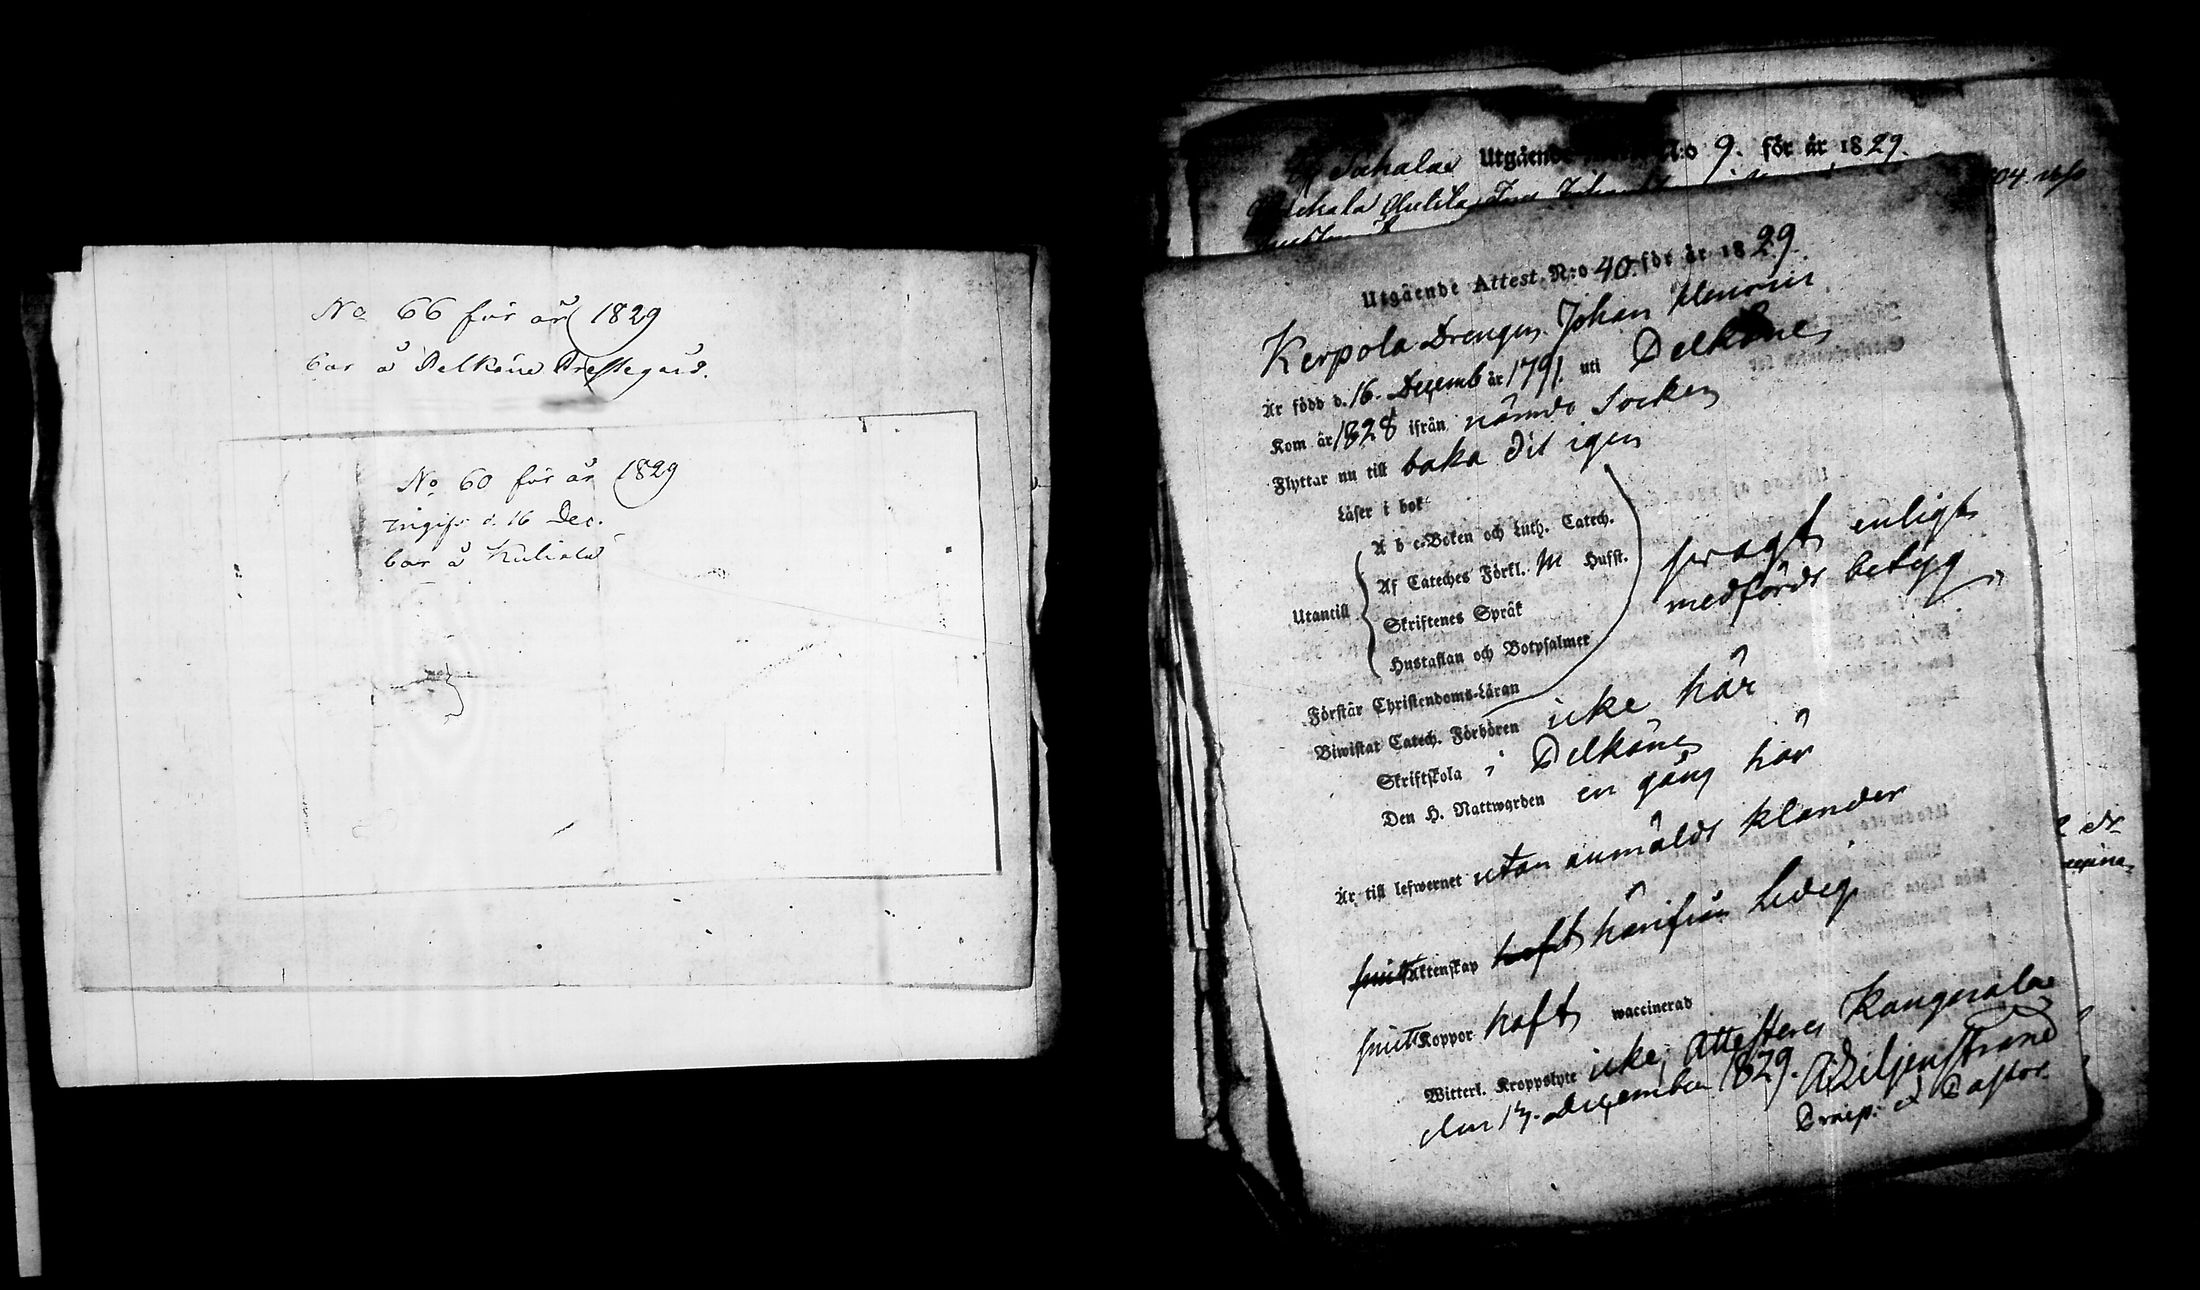 No 66 för år 1829
bor å Pelkäne Prestegård.
No 60 för år 1829
Ingifv. d. 16 Dec.
bor å Kuliala
Sahalax Utgående N:o 9. för år 1829.
Utgående Attest N:o 40. för år 1829.
Kerpola Drengen Johan
Är född d. 16. Decemb år 1791. uti Pelkäne
Kom år 1828 ifrån nämde Socken
Flyttar nu till baka dit igen
Läser i bok
A b c-Boken och Luth. Catech.
Af Cateches Förkl. M Husft.
Utantill
Skriftenes Språk
Hustaflan och Botpsalmer
svagt enligt
medförde betyg
Förstår Christendoms-Läran
Biwistat Catech. Förhören icke här
Skriftskola i Pelkäne
Den H. Nattwarden en gång här
Är till lefwernet utan anmäldt klander
Äktenskap härifrån ledig
Koppor haft waccinerad
Witterl. Kroppslyte icke, Attesterar Kangasala
den 17. December 1829. A Liljenstrand
Praep. & Pastor.